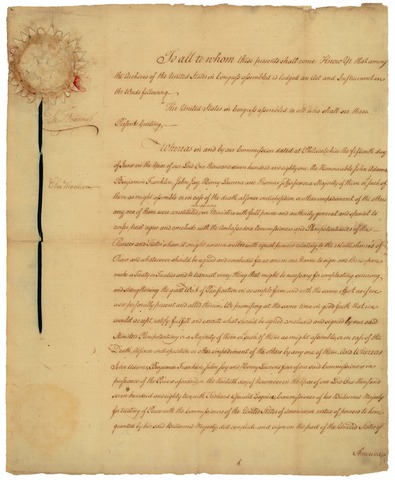 To all to whom these presents shall come Know Ye that among
the Archives of the United States in Congress assembled is lodged an Act and Instrument in
the Words following
The United States in Congress assembled to all who shall see these
Presents Greeting,
Whereas in and by our Commission dated at Philadelphia the fifteenth day
of June in the Year of our Lord One thousand seven hundred and eighty one, the Honourable John Adams,
Benjamin Franklin, John Jay, Henry Laurens and Thomas Jefferson or a Majority of them or of such of
them as might assemble or in case of the death, absence, indisposition or other impediment of the others
any one of them were constituted our Ministers with full power and authority general and special to
confer, treat, agree and conclude with the Ambassadors Commissioners and Plenipotentiaries of the
Princes and States whom it might concern vested with equal powers relating to the establishment of
Peace and whatsoever should be agreed and concluded for us and in our Name to sign and thereupon
make a Treaty or Treaties and to transact every thing that might be necessary for compleating securing
and strengthening the great Work of Pacification in as ample form and with the same effect as if we
were personally present and acted therein We promising at the same time in good faith that we
would accept ratify fulfil and execute what should be agreed concluded and signed by our said
Ministers Plenipotentiary or a Majority of them or of such of them as might assemble or in case of the
Death, absence, indisposition or other impediment of the others by any one of them. And Whereas
John Adams, Benjamin Franklin, John Jay and Henry Laurens four of our said Commissioners in
presence of the Peace aforesaid on the thirtieth day of November in the Year of our Lord One thousand
seven hundred and eighty two with Richard Oswald Esquire Commissioner of his Britannic Majesty
for treating of Peace with the Commissioners of the United States of America in virtue of powers to him
granted by his said Britannic Majesty did conclude and sign on the part of the United States of
America
Cha Thomson